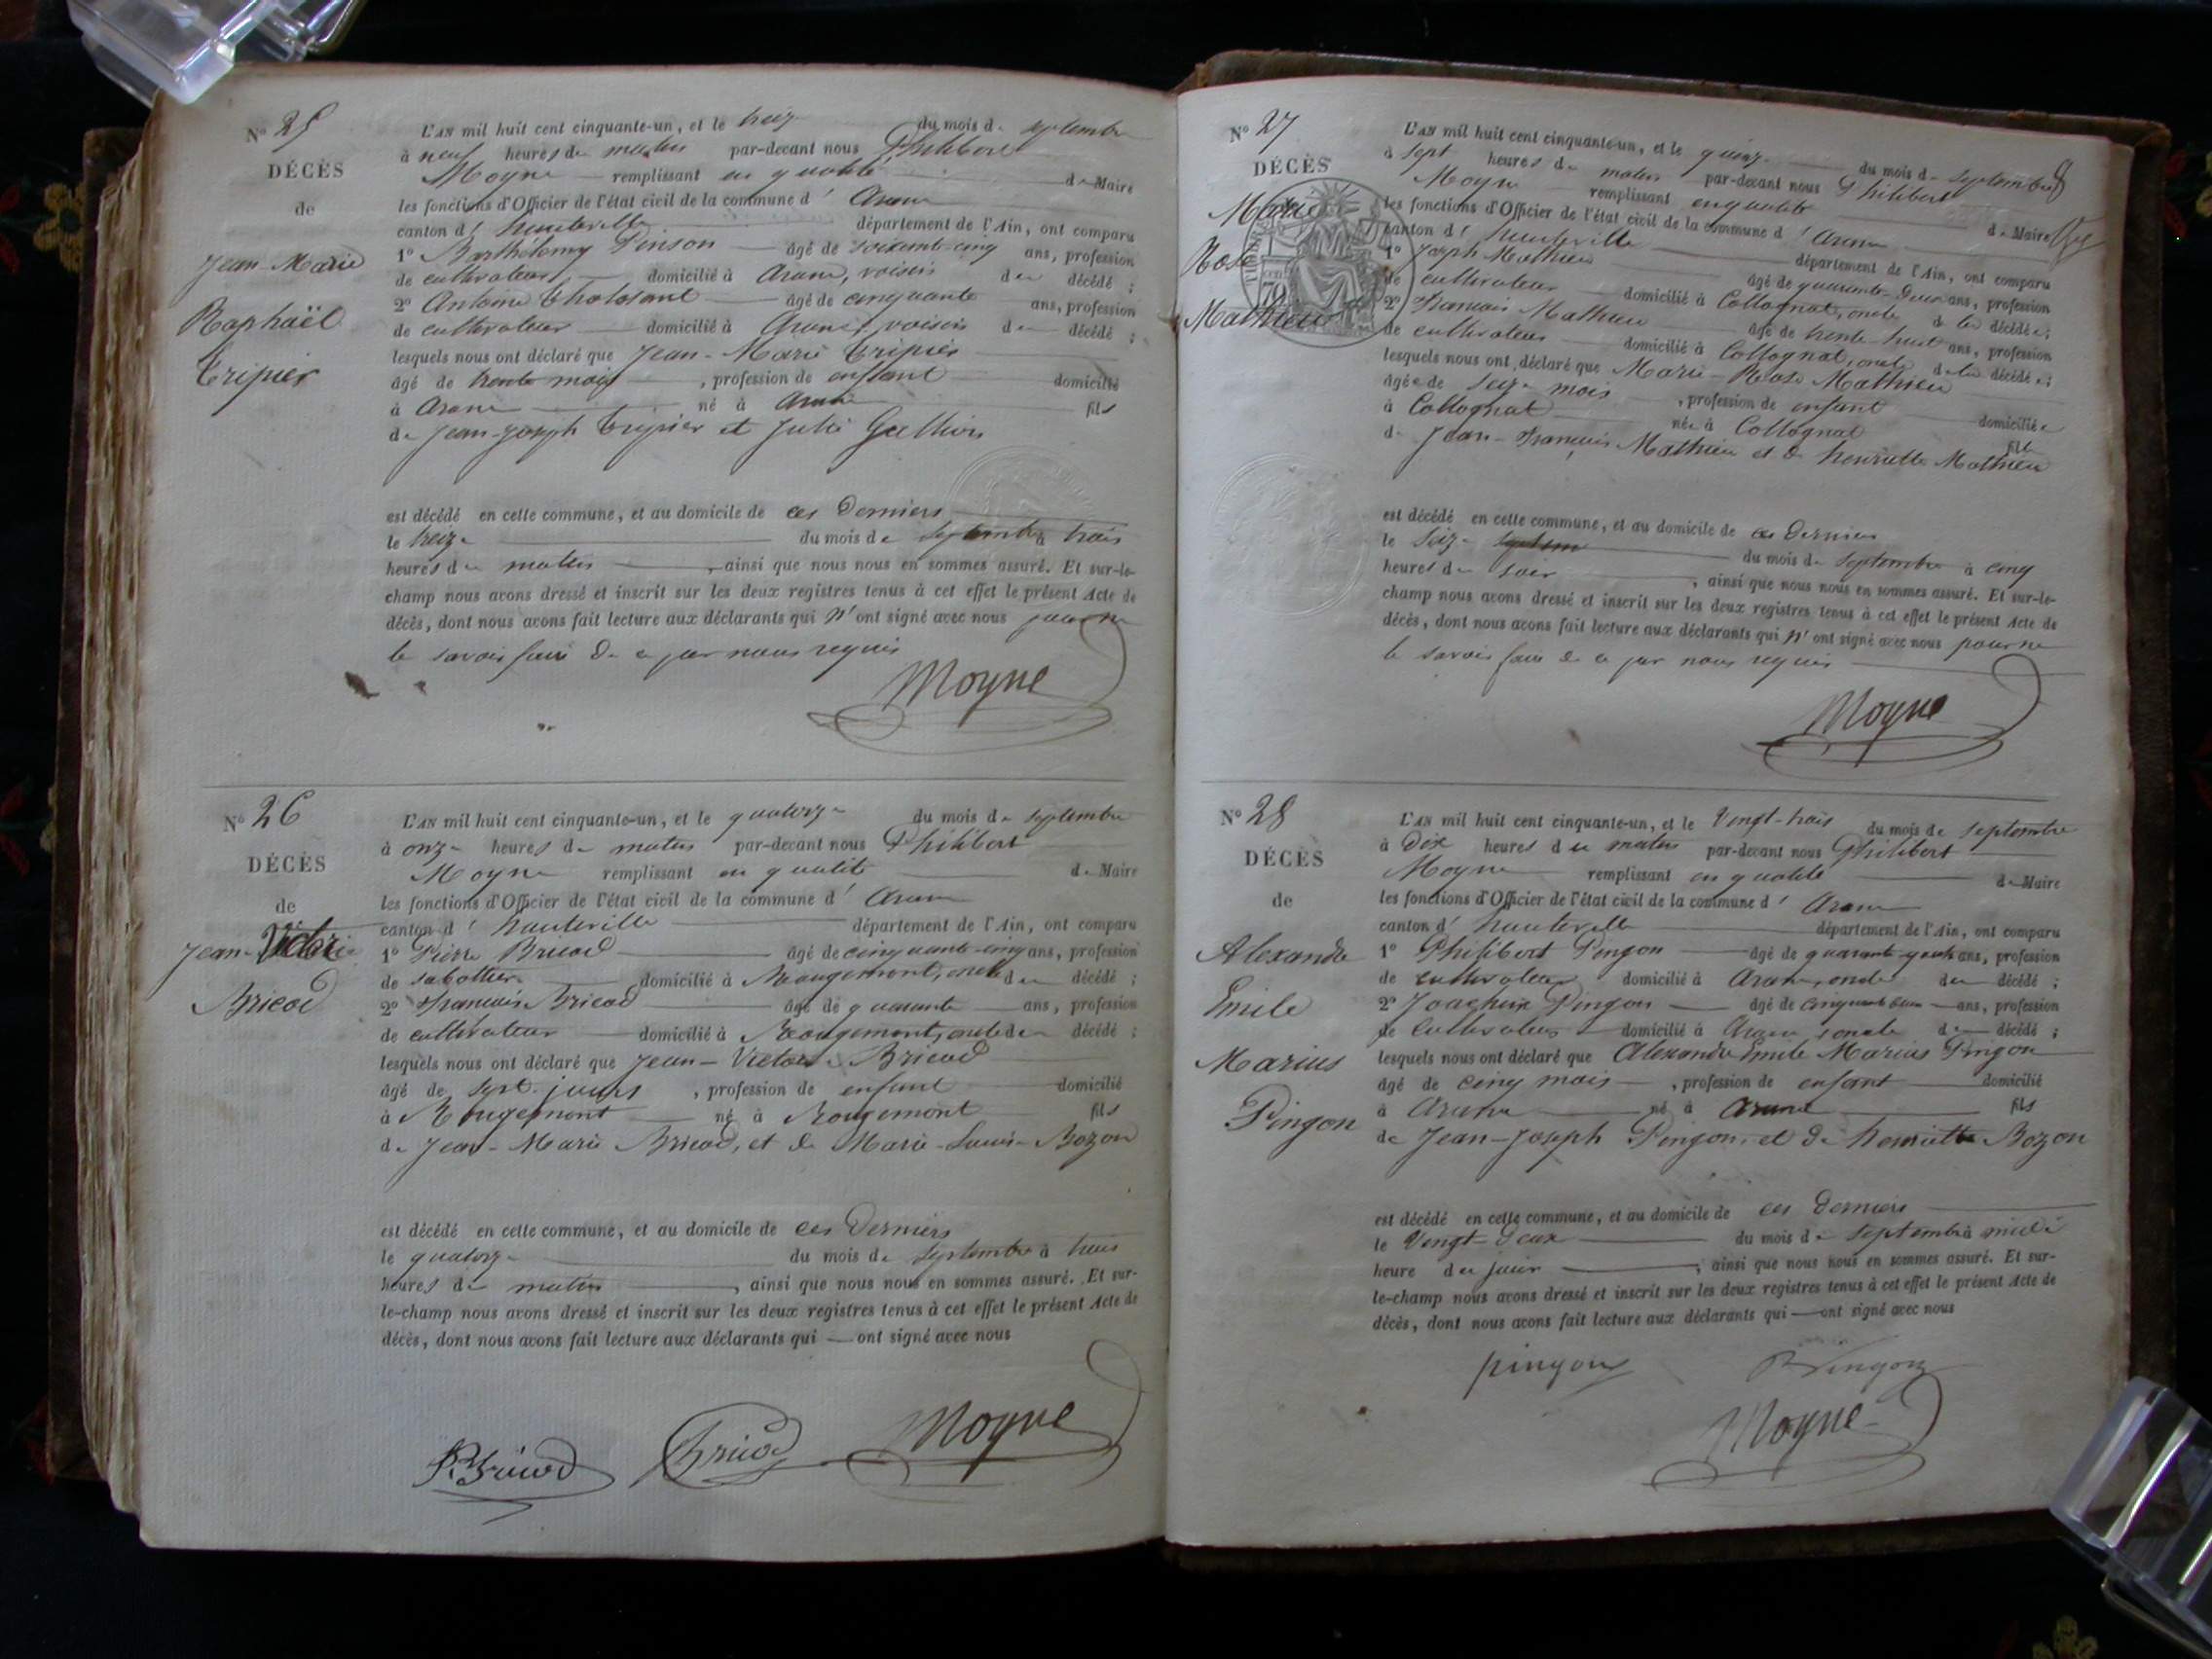 N° 25
DÉCÈS
de
Jean-Marie
Raphaël
Tripier
L'AN mil huit cent cinquante-un, et le treize du mois de septembre
à neuf heures du matin par-devant nous Philibert
Moyne remplissant en qualité de Maire
les fonctions d'Officier de l'état civil de la commune d' Aranc
canton d' hauteville département de l'Ain, ont comparu
1° Barthélemy Pinson âgé de soixante-cinq ans, profession
de cultivateur, domicilié à Aranc, voisin du décédé ;
2° Antoine âgé de cinquante ans, profession
de cultivateur domicilié à Aranc, voisin du décédé ;
lesquels nous ont déclaré que Jean-Marie Tripier
âgé de trente mois , profession de enfant domicilié
à Aranc né à Aranc fils
de Jean-Joseph Tripier et Julie
est décédé en cette commune, et au domicile de ces Derniers
le treize du mois de septembre à trois
heures du matin , ainsi que nous nous en sommes assuré. Et sur-le-
champ nous avons dressé et inscrit sur les deux registres tenus à cet effet le présent Acte de
décès, dont nous avons fait lecture aux déclarants qui n'ont signé avec nous pour ne
le savoir faire de ce par nous requis
Moyne
N° 26
DÉCÈS
de
Jean-Victor
Bricod
L'AN mil huit cent cinquante-un, et le quatorze du mois de septembre
à onze heures du matin par-devant nous Philibert
Moyne remplissant en qualité de Maire
les fonctions d'Officier de l'état civil de la commune d' Aranc
canton d' hauteville département de l'Ain, ont comparu
1° Pierre Bricod âgé de cinquante-cinq ans, profession
de sabottier domicilié à Rougemont, oncle du décédé ;
2° François Bricod âgé de quarante ans, profession
de cultivateur domicilié à Rougemont, oncle du décédé ;
lesquels nous ont déclaré que Jean-Victor Bricod
âgé de sept jours , profession de enfant domicilié
à Rougemont né à Rougemont fils
de Jean-Marie Bricod, et de Marie-Louise Bozon
est décédé en cette commune, et au domicile de ces Derniers
le quatorze du mois de septembre à trois
heures du matin , ainsi que nous nous en sommes assuré. Et sur-
le-champ nous avons dressé et inscrit sur les deux registres tenus à cet effet le présent Acte de
décès, dont nous avons fait lecture aux déclarants qui — ont signé avec nous
P. Bricod Bricod Moyne
N° 27
DÉCÈS
Marie
Rose
Mathieu
L'AN mil huit cent cinquante-un, et le quinze du mois de septembre
à sept heures du matin par-devant nous Philibert
Moyne remplissant en qualité de Maire
les fonctions d'Officier de l'état civil de la commune d' Aranc
canton d' hauteville département de l'Ain, ont comparu
1° Joseph Mathieu âgé de quarante-deux ans, profession
de cultivateur domicilié à Collognat, oncle de la décédée ;
2° François Mathieu âgé de trente-huit ans, profession
de cultivateur domicilié à Collognat, oncle de la décédée ;
lesquels nous ont déclaré que Marie-Rose Mathieu
âgée de seize mois , profession de enfant domiciliée
à Collognat née à Collognat fille
de Jean-François Mathieu et de henriette Mathieu
est décédé en cette commune, et au domicile de ces Derniers
le seize du mois de septembre à cinq
heures du soir , ainsi que nous nous en sommes assuré. Et sur-le-
champ nous avons dressé et inscrit sur les deux registres tenus à cet effet le présent Acte de
décès, dont nous avons fait lecture aux déclarants qui n'ont signé avec nous pour ne
le savoir faire de ce par nous requis
Moyne
N° 28
DÉCÈS
de
Alexandre
Emile
Marius
Pingon
L'AN mil huit cent cinquante-un, et le Vingt-trois du mois de septembre
à Dix heures du matin par-devant nous Philibert
Moyne remplissant en qualité de Maire
les fonctions d'Officier de l'état civil de la commune d' Aranc
canton d' hauteville département de l'Ain, ont comparu
1° Philibert Pingon âgé de quarante-quatre ans, profession
de cultivateur domicilié à Aranc, oncle du décédé ;
2° Joachim Pingon âgé de cinquante deux ans, profession
de Cultivateur domicilié à Aranc, oncle du décédé ;
lesquels nous ont déclaré que Alexandre Emile Marius Pingon
âgé de cinq mois , profession de enfant domicilié
à Aranc né à Aranc fils
de Jean-Joseph Pingon, et de henriette Bozon
est décédé en cette commune, et au domicile de ces Derniers
le Vingt-deux du mois de septembre à midi
heure du jour , ainsi que nous nous en sommes assuré. Et sur-
le-champ nous avons dressé et inscrit sur les deux registres tenus à cet effet le présent Acte de
décès, dont nous avons fait lecture aux déclarants qui — ont signé avec nous
pingon Pingon
Moyne